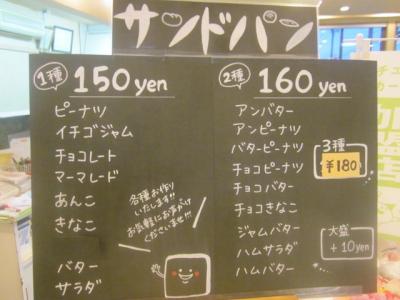 サンドパン
1種 150yen
ピーナツ
イチゴジャム
チョコレート
マーマレード
あんこ
きなこ
バター
サラダ
各種お作り
いたします!!
お気軽にお声がけ
くださいませ!!!
2種 160yen
アンバター
アンピーナツ
バターピーナツ
チョコピーナツ
チョコバター
チョコきなこ
ジャムバター
ハムサラダ
ハムバター
3種
¥180
大盛
+10yen